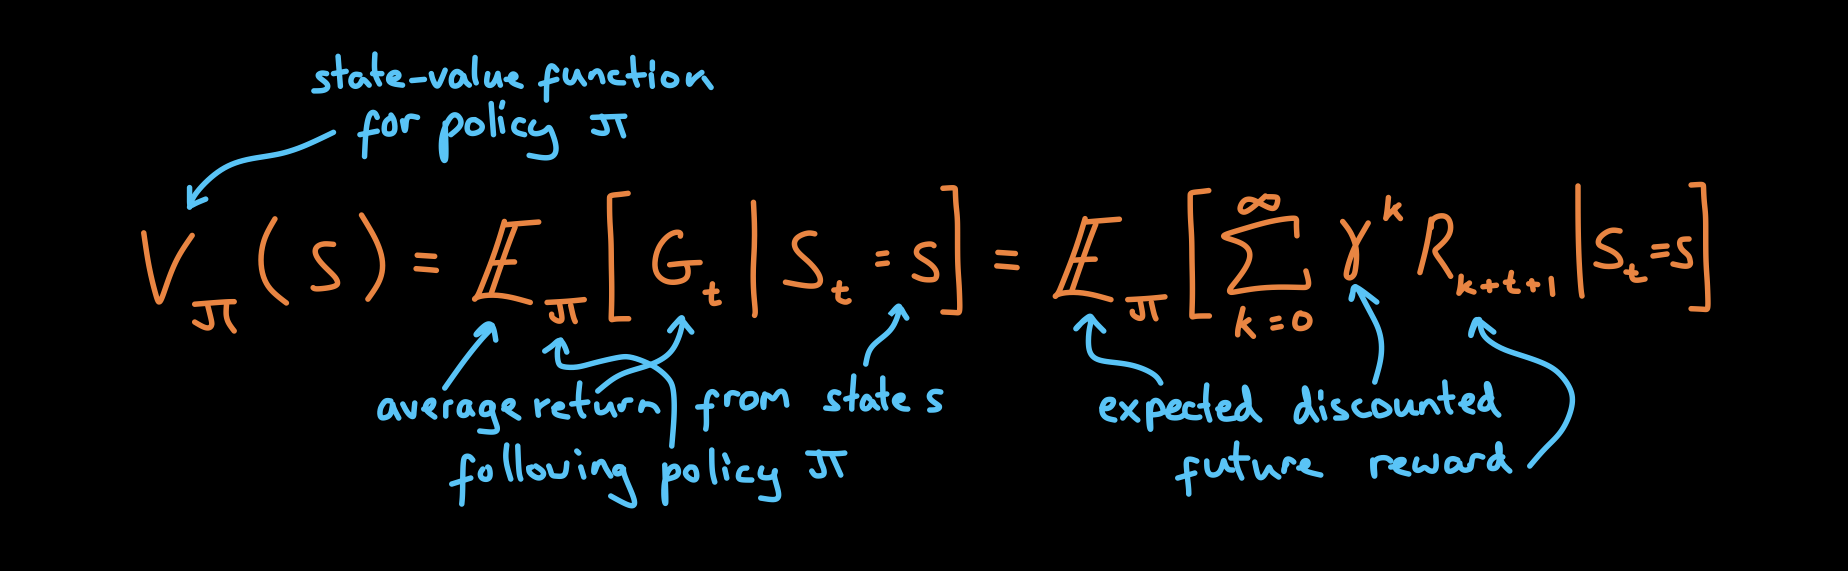 state-value function
for policy π
V_π(s) = 𝔼_π[G_t | S_t = s] = 𝔼_π[∑_{k=0}^{∞} γ^k R_{k+t+1} | S_t = s]
average return from state s
following policy π
expected discounted
future reward